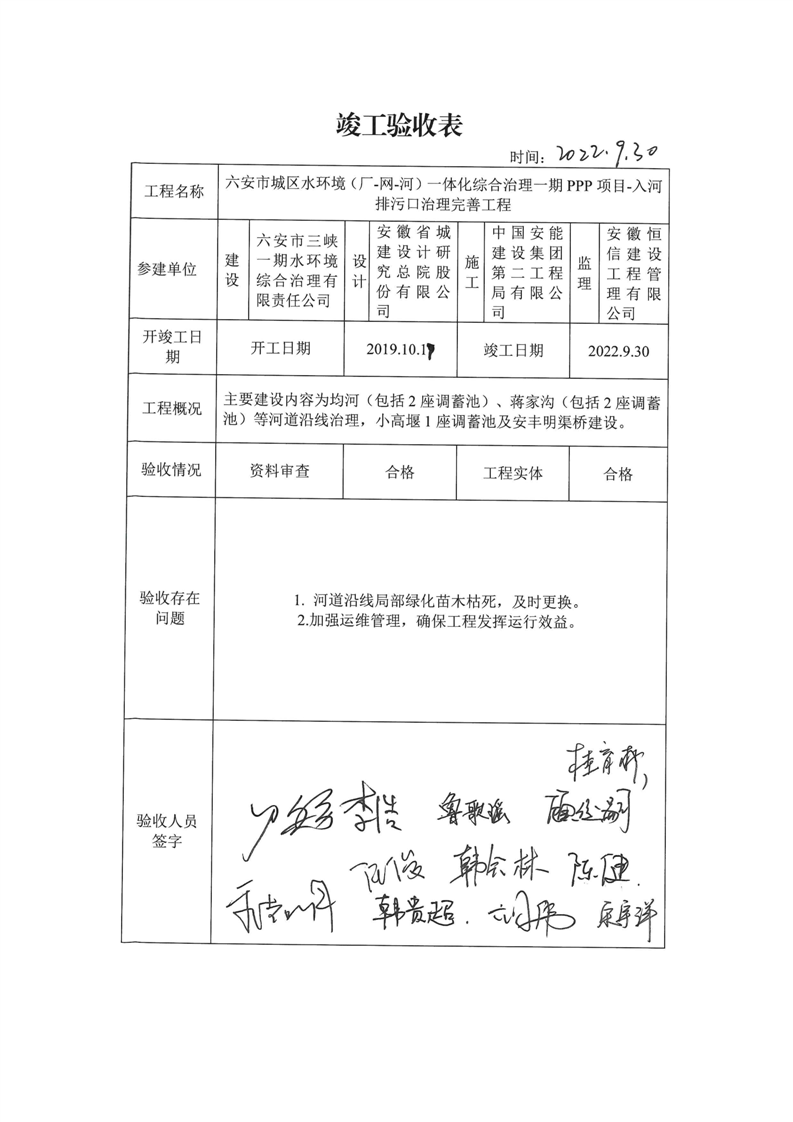 竣工验收表
时间：2022.9.30
工程名称
六安市城区水环境（厂-网-河）一体化综合治理一期 PPP 项目-入河
排污口治理完善工程
参建单位
建
设
六安市三峡
一期水环境
综合治理有
限责任公司
设
计
安徽省城
建设计研
究总院股
份有限公
司
施
工
中国安能
建设集团
第二工程
局有限公
司
监
理
安徽恒
信建设
工程管
理有限
公司
开竣工日
期
开工日期
2019.10.1
竣工日期
2022.9.30
工程概况
主要建设内容为均河（包括 2 座调蓄池）、蒋家沟（包括 2 座调蓄
池）等河道沿线治理，小高堰 1 座调蓄池及安丰明渠桥建设。
验收情况
资料审查
合格
工程实体
合格
验收存在
问题
1. 河道沿线局部绿化苗木枯死，及时更换。
2.加强运维管理，确保工程发挥运行效益。
验收人员
签字
李浩 鲁歌谣
韩会林 陈健
韩贵超.